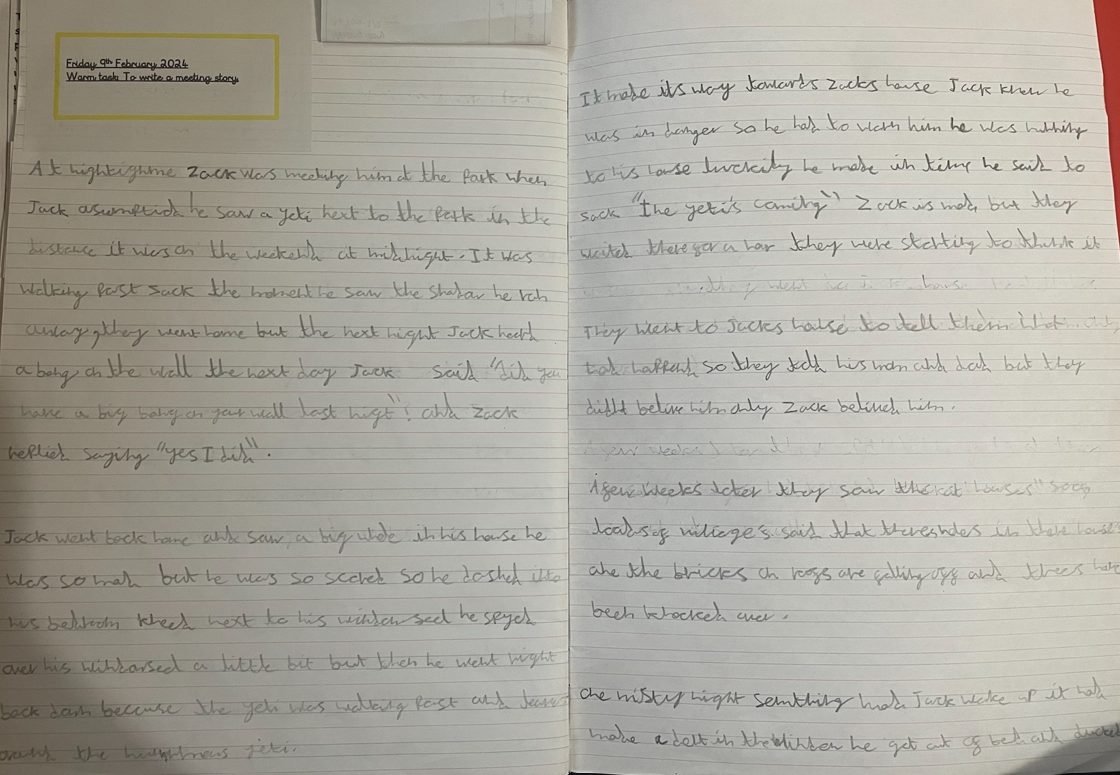 Friday 9th February 2024
Warm task: To write a meeting story.
At nightighme Zack was meeting him at the Park when
Jack asumptid he saw a yeti next to the Park in the
distance it was on the weekend at midnight. It was
walking Past Jack the moment he saw the shadow he ran
away they went home but the next night Jack heard
a bang on the wall the next day Jack said "did you
have a big bang on your wall last night"! and Zack
replied saying "yes I did".
Jack went back home and saw a big in his house he
was so mad but he was so scared so he dashed into
his bedroom next to his seel he spyed
over his a little bit but then he went right
back down because the yeti was walking Past and
the yeti.
It made its way towards Zacks house Jack knew he
was in danger so he had to warn him he was running
to his house luckily he made in time he said to
"the yeti's coming" Zack is mad but they
waited there for a they were starting to think it
They went to Jacks house to tell them that
had happend so they told his mom and dad but they
didt belive him only Zack belived him.
A few weeks later they saw that houses
loads of villages said that in there house
are the bricks on roofs are falling off and trees have
been knocked over.
one misty night something had Jack wake up it had
made a in the he got out of bed and ducked